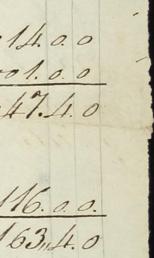 14.0.0
001.0.0
47.4.0
116.0.0.
163,,4.0